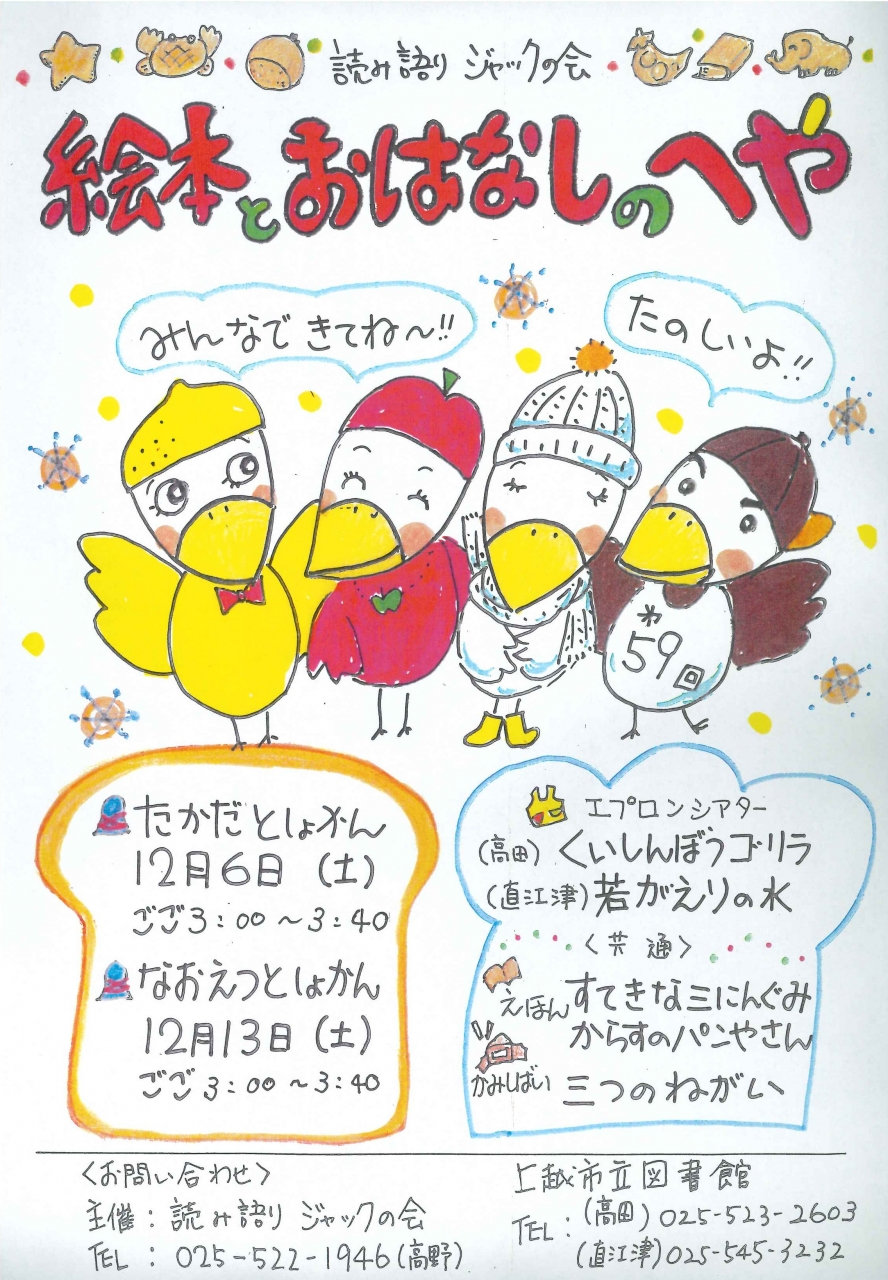 読み語り ジャックの会
絵本とおはなしのへや
みんなで きてね〜!!
たのしいよ!!
㐧59回
たかだとしょかん
12月6日（土）
ごご3：00〜3：40
なおえつとしょかん
12月13日（土）
ごご3：00〜3：40
エプロンシアター
（高田）くいしんぼうゴリラ
（直江津）若がえりの水
〈共通〉
えほん すてきな三にんぐみ
からすのパンやさん
かみしばい 三つのねがい
〈お問い合わせ〉
主催：読み語り ジャックの会
TEL：025-522-1946（高野）
上越市立図書館
TEL：（高田）025-523-2603
（直江津）025-545-3232